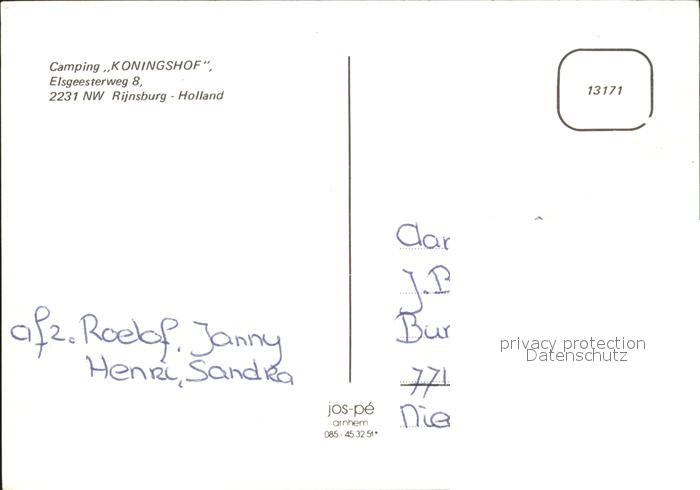 Camping „KONINGSHOF",
Elsgeesterweg 8,
2231 NW Rijnsburg - Holland
13171
afz. Roelof, Janny
Henri, Sandra
jos-pé
arnhem
085 - 45 32 51*
J.B
Bur
771
Nie
privacy protection
Datenschutz